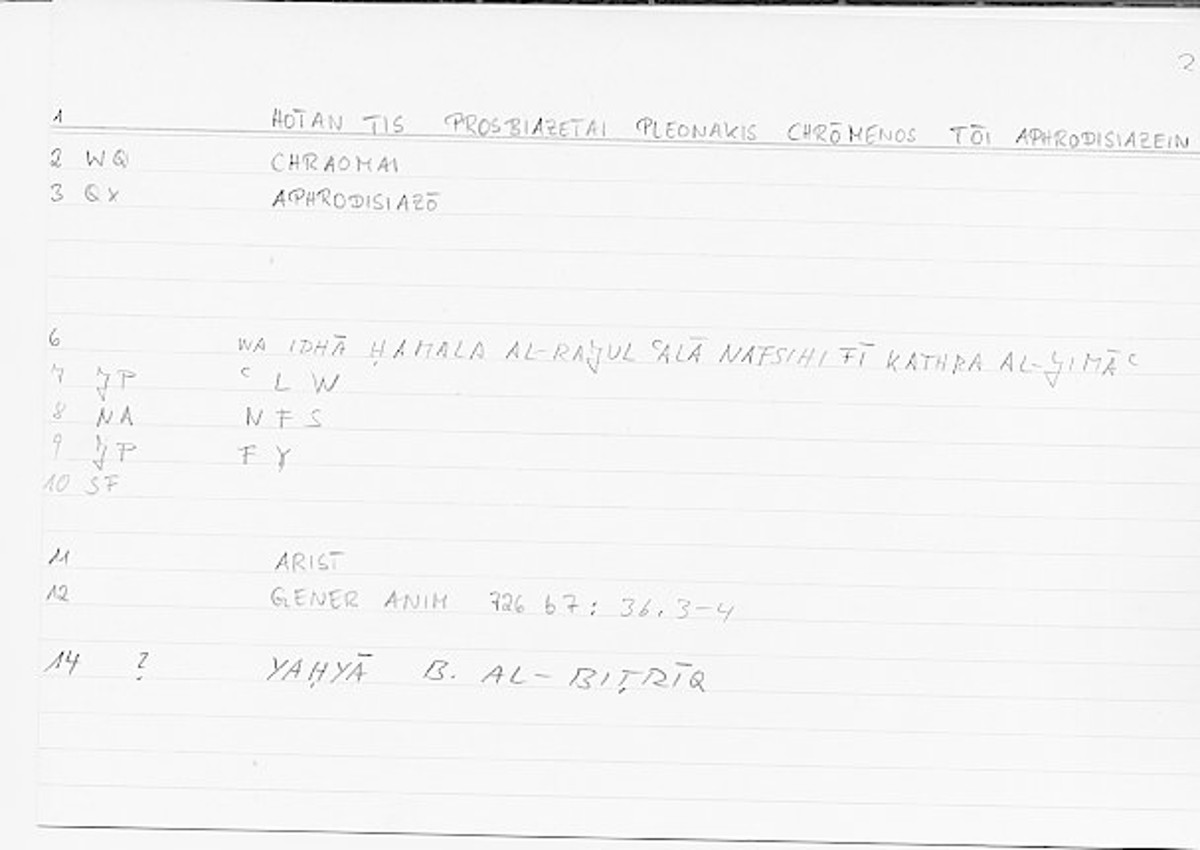 2
1 HOTAN TIS PROSBIAZETAI PLEONAKIS CHRŌMENOS TŌI APHRODISIAZEIN
2 WQ CHRAOMAI
3 QX APHRODISIAZŌ
6 WA IDHĀ ḤAMALA AL-RAJUL ʿALĀ NAFSIHI FĪ KATHRA AL-JIMĀʿ
7 JP ʿ L W
8 NA N F S
9 JP F Y
10 SF
11 ARIST
12 GENER ANIM 726 b 7 : 36. 3-4
14 ? YAḤYĀ B. AL-BIṬRĪQ